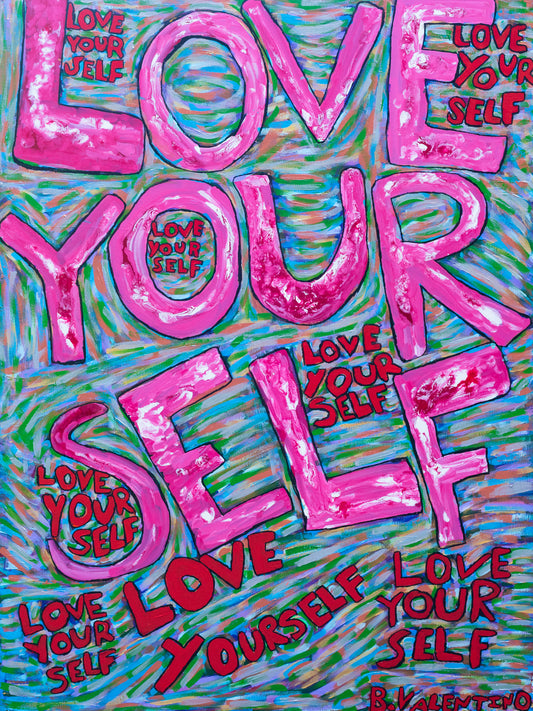 LOVE
YOUR
SELF
LOVE
YOUR
SELF
LOVE
YOUR
SELF
LOVE
YOUR
SELF
LOVE
YOUR
SELF
LOVE
YOUR
SELF
LOVE
YOUR
SELF
LOVE
YOURSELF
LOVE
YOUR
SELF
B. VALENTINO